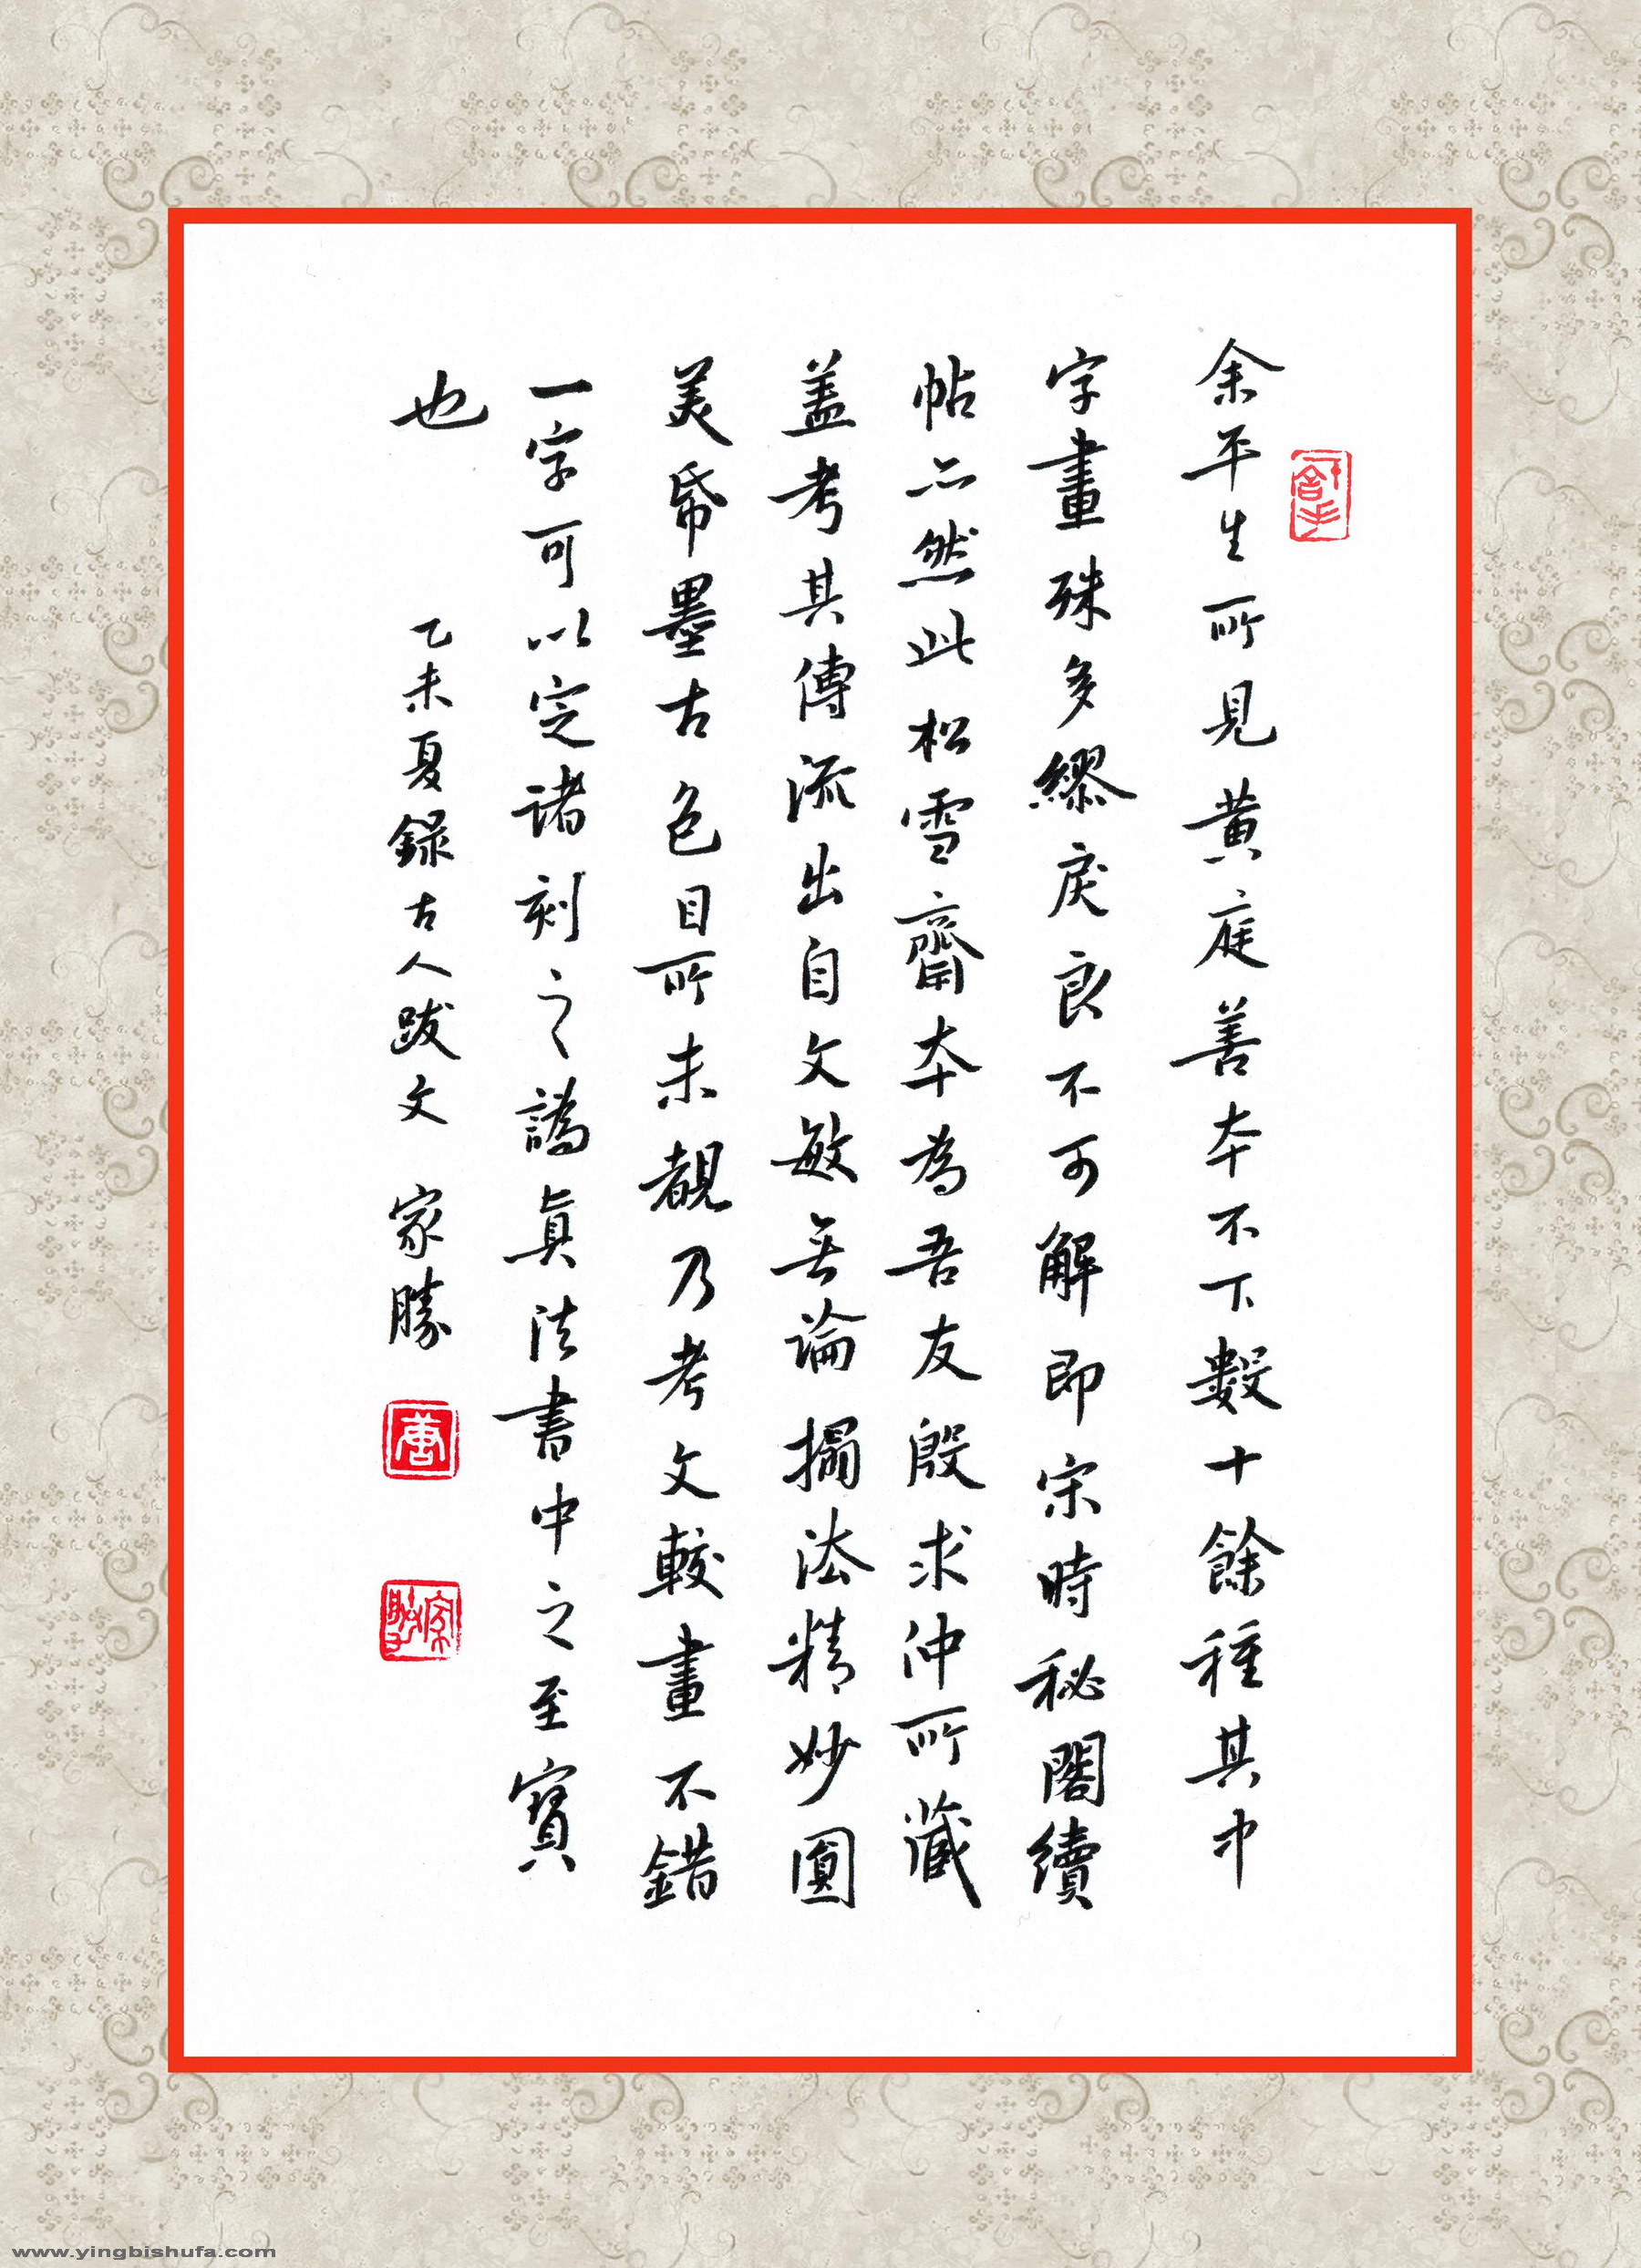 余平生所見黄庭善本不下數十餘種其中
字畫殊多繆戾良不可解即宋時秘閣續
帖亦然此松雪齋本為吾友殷求仲所藏
盖考其傳流出自文敏無論搨法精妙圓
美帋墨古色目所未覩乃考文較畫不錯
一字可以定諸刻之譌真法書中之至寶
也
乙未夏錄古人跋文 家勝
唐
家勝
www.yingbishufa.com